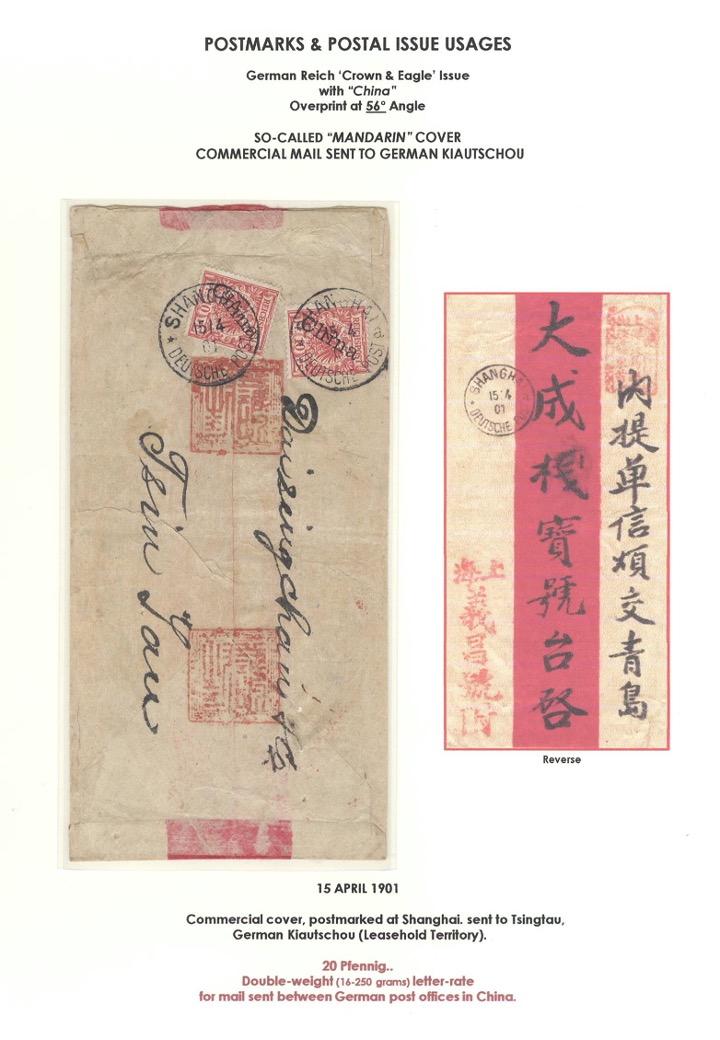 POSTMARKS & POSTAL ISSUE USAGES
German Reich ‘Crown & Eagle’ Issue
with “China”
Overprint at 56° Angle
SO-CALLED “MANDARIN” COVER
COMMERCIAL MAIL SENT TO GERMAN KIAUTSCHOU
SHANGHAI
15/4
01
* DEUTSCHE POST
China
10
SHANGHAI a
China
10
DEUTSCHE POST
Tsin Tau
內提单信煩交青島
大成棧寶號台啓
SHANGHAI
15/4
01
* DEUTSCHE POST
上海
義昌號
Reverse
15 APRIL 1901
Commercial cover, postmarked at Shanghai. sent to Tsingtau,
German Kiautschou (Leasehold Territory).
20 Pfennig..
Double-weight (16-250 grams) letter-rate
for mail sent between German post offices in China.